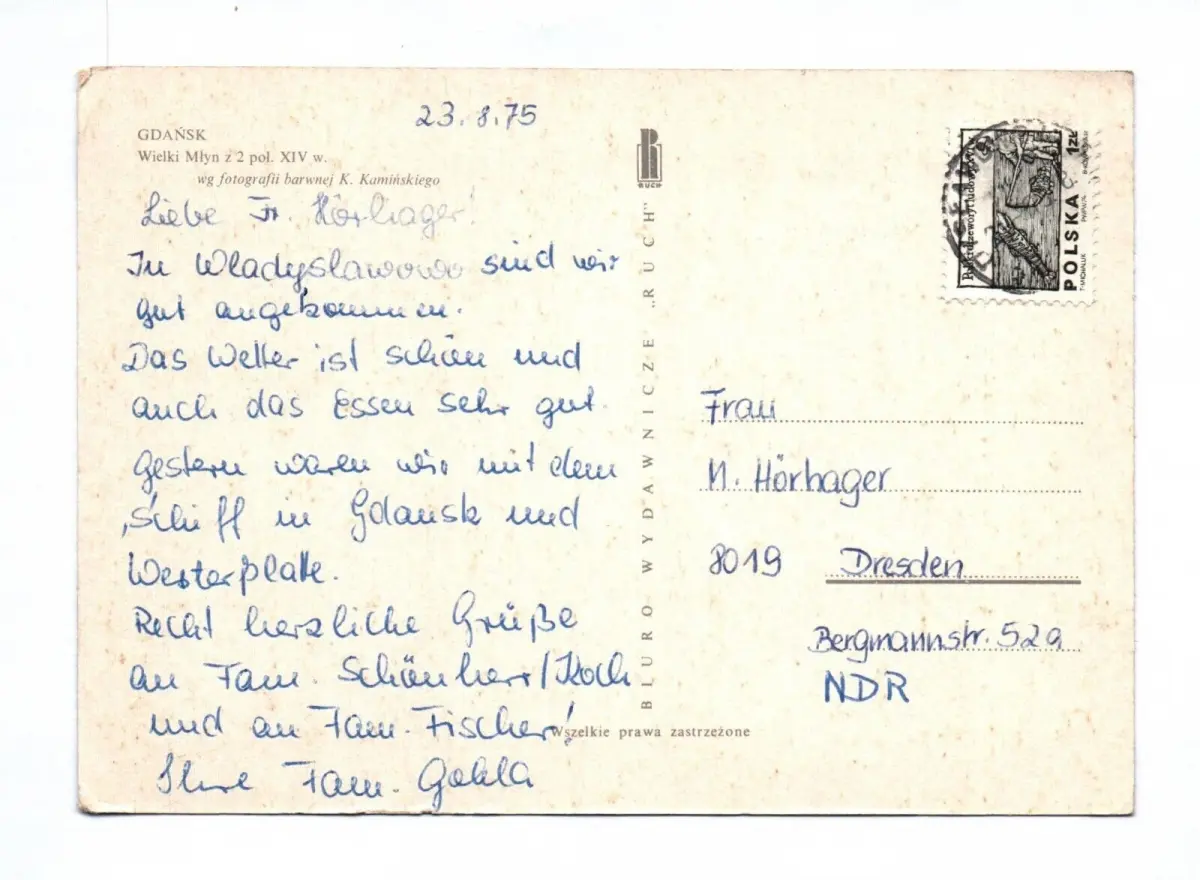 23.8.75
GDAŃSK
Wielki Młyn z 2 poł. XIV w.
wg fotografii barwnej K. Kamińskiego
Liebe Fr. Hörhager!
In Wladyslawowo sind wir
gut angekommen.
Das Wetter ist schön und
auch das Essen sehr gut.
Gestern waren wir mit dem
Schiff in Gdansk und
Westerplatte.
Recht herzliche Grüße
an Fam. Schönherr/Koch
und an Fam. Fischer!
Ihre Fam.
RUCH
BIURO WYDAWNICZE „RUCH"
Wszelkie prawa zastrzeżone
POLSKA
1zł
Frau
M. Hörhager
8019 Dresden
Bergmannstr. 52a
NDR